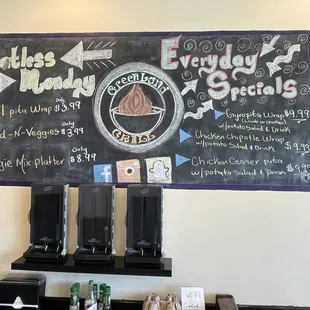 Meatless
Monday
pita wrap only $3.99
d-N-Veggies only $3.99
gie Mix platter only $8.49
GreenLand
GRILL
Everyday
Specials
Gyro pita Wrap $9.99
w/potato Salad & Drink
Chicken Chipotle Wrap
w/potato Salad & Drink $9.99
Chicken Ceaser pita
w/potato Salad & Drink $9.99
WI-FI